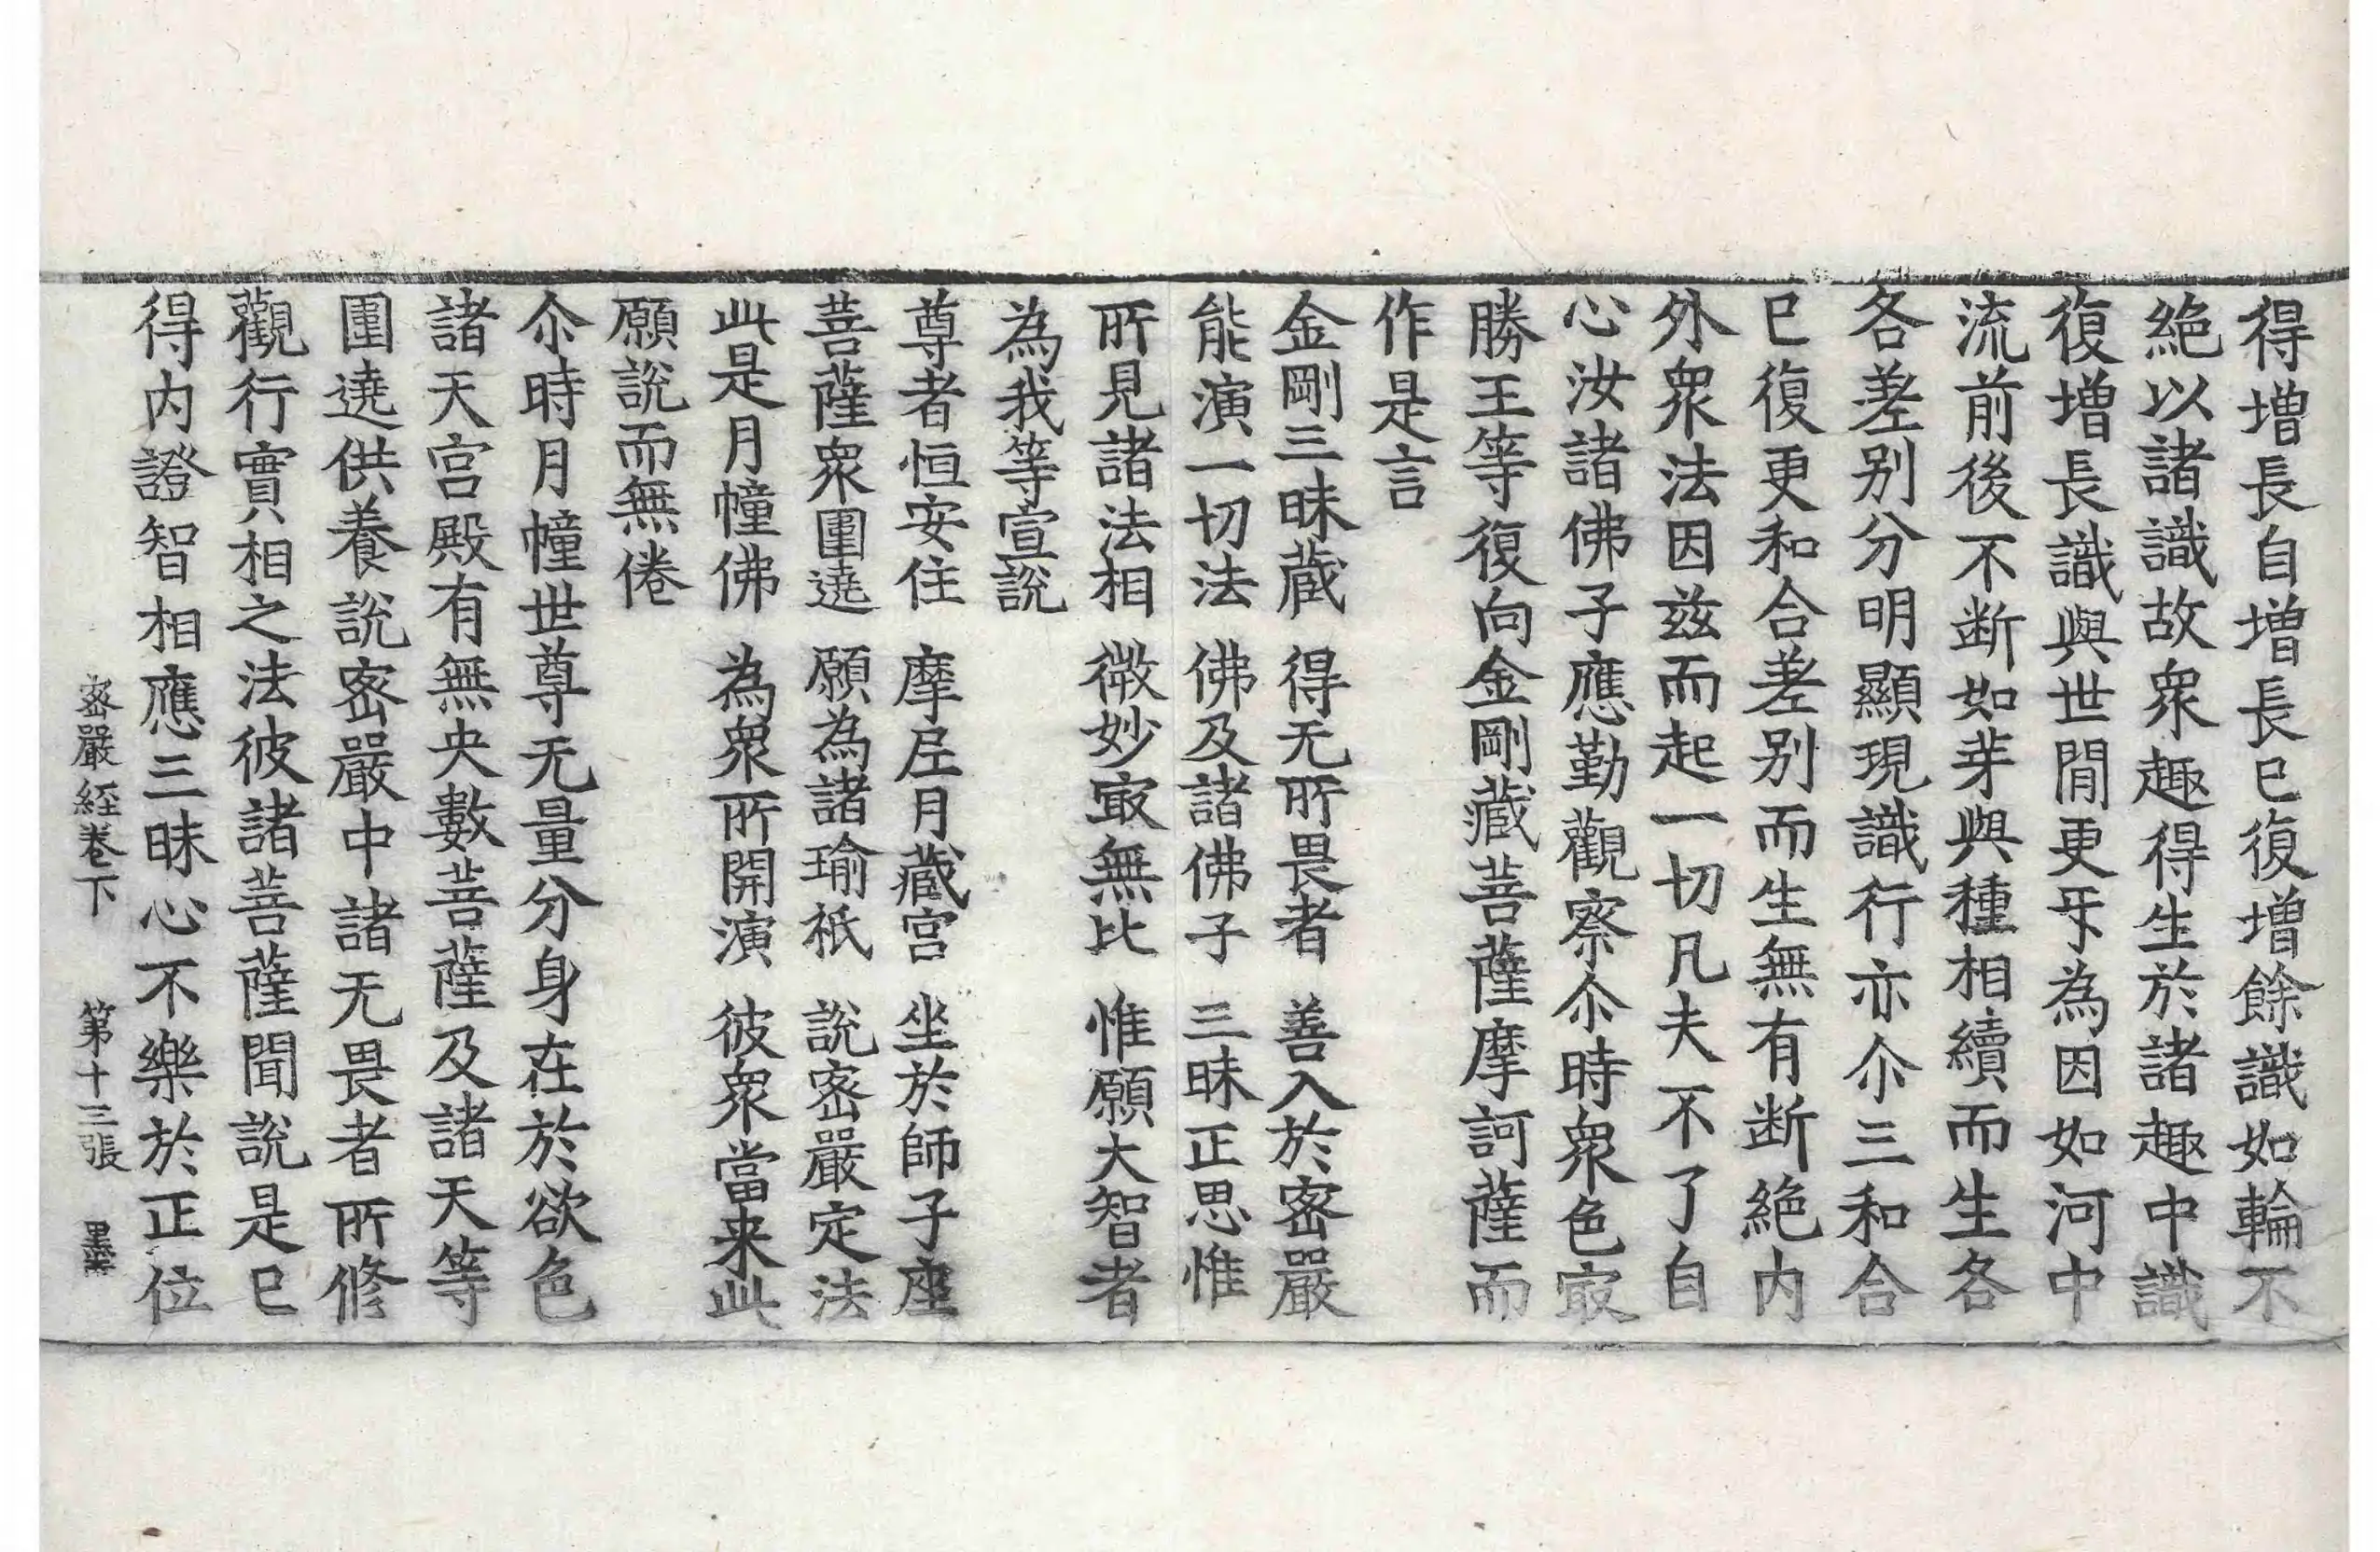 得增長自增長已復增餘識如輪不
絕以諸識故衆趣得生於諸趣中識
復增長識與世間更㸦為因如河中
流前後不断如芽與種相續而生各
各差别分明顯現識行亦尒三和合
已復更和合差别而生無有断絕内
外衆法因兹而起一切凡夫不了自
心汝諸佛子應勤觀察尒時衆色㝡
勝王等復向金剛藏菩薩摩訶薩而
作是言
金剛三昧藏　得无所畏者　善入於密嚴
能演一切法　佛及諸佛子　三昧正思惟
所見諸法相　微妙㝡無比　惟願大智者
為我等宣說
尊者恒安住　摩𡰱月藏宮　坐於師子座
菩薩衆圍遶　願為諸瑜祇　說密嚴定法
此是月幢佛　為衆所開演　彼衆當来此
願說而無倦
尒時月幢世尊无量分身在於欲色
諸天宮殿有無央數菩薩及諸天等
圍遶供養說密嚴中諸无畏者所修
觀行實相之法彼諸菩薩聞說是已
得内證智相應三昧心不樂於正位
密嚴經卷下　第十三張